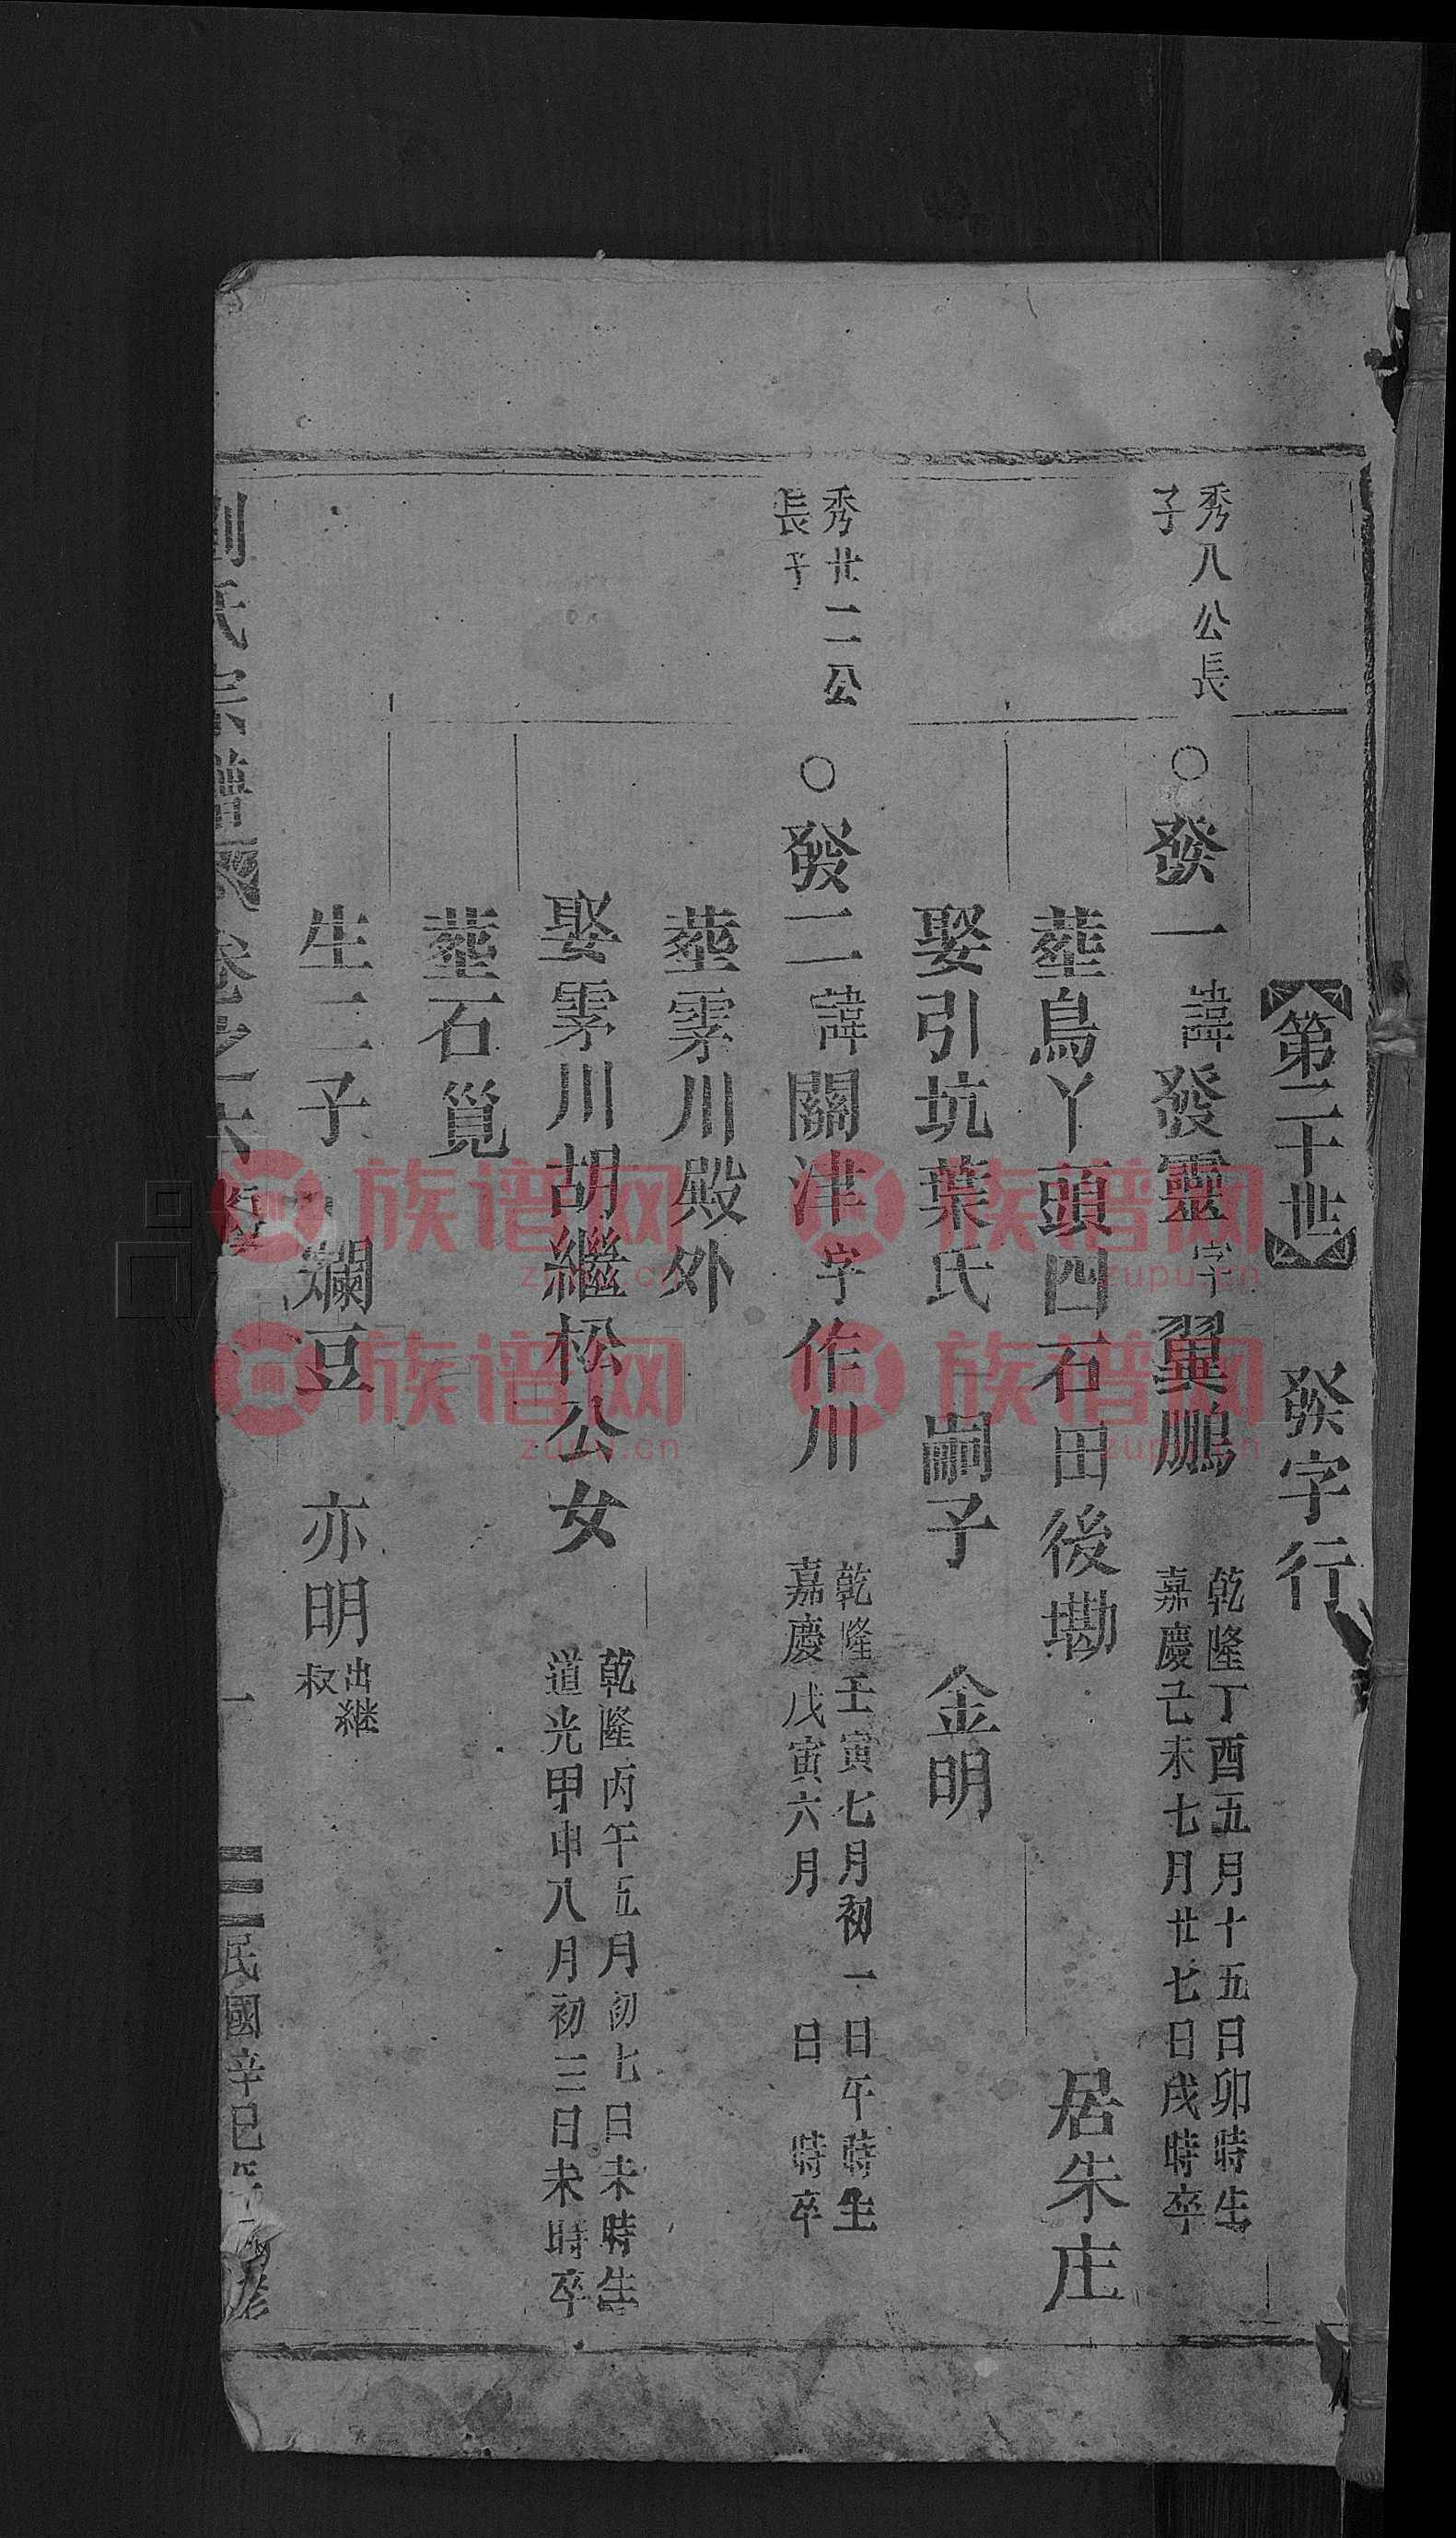 第二十世 發字行
秀八公長
子
○發一諱發靈字翼鵬
乾隆丁酉五月十五日卯時生
嘉慶己未七月廿七日戌時卒
塟鳥丫頭四石田後塝 居朱庄
娶引坑葉氏 嗣子 金明
秀廿二公
長子
○發二諱關津字作川
乾隆壬寅七月初一日午時生
嘉慶戊寅六月 日 時卒
塟雺川殿外
娶雺川胡繼松公女
乾隆丙午五月初七日未時生
道光甲申八月初三日未時卒
塟石筧
生二子 爛豆 亦明
出継
叔
氏宗譜 卷之六 一 民國辛巳
族谱网
zupu.cn
族谱网
zupu.cn
族谱网
zupu.cn
族谱网
zupu.cn